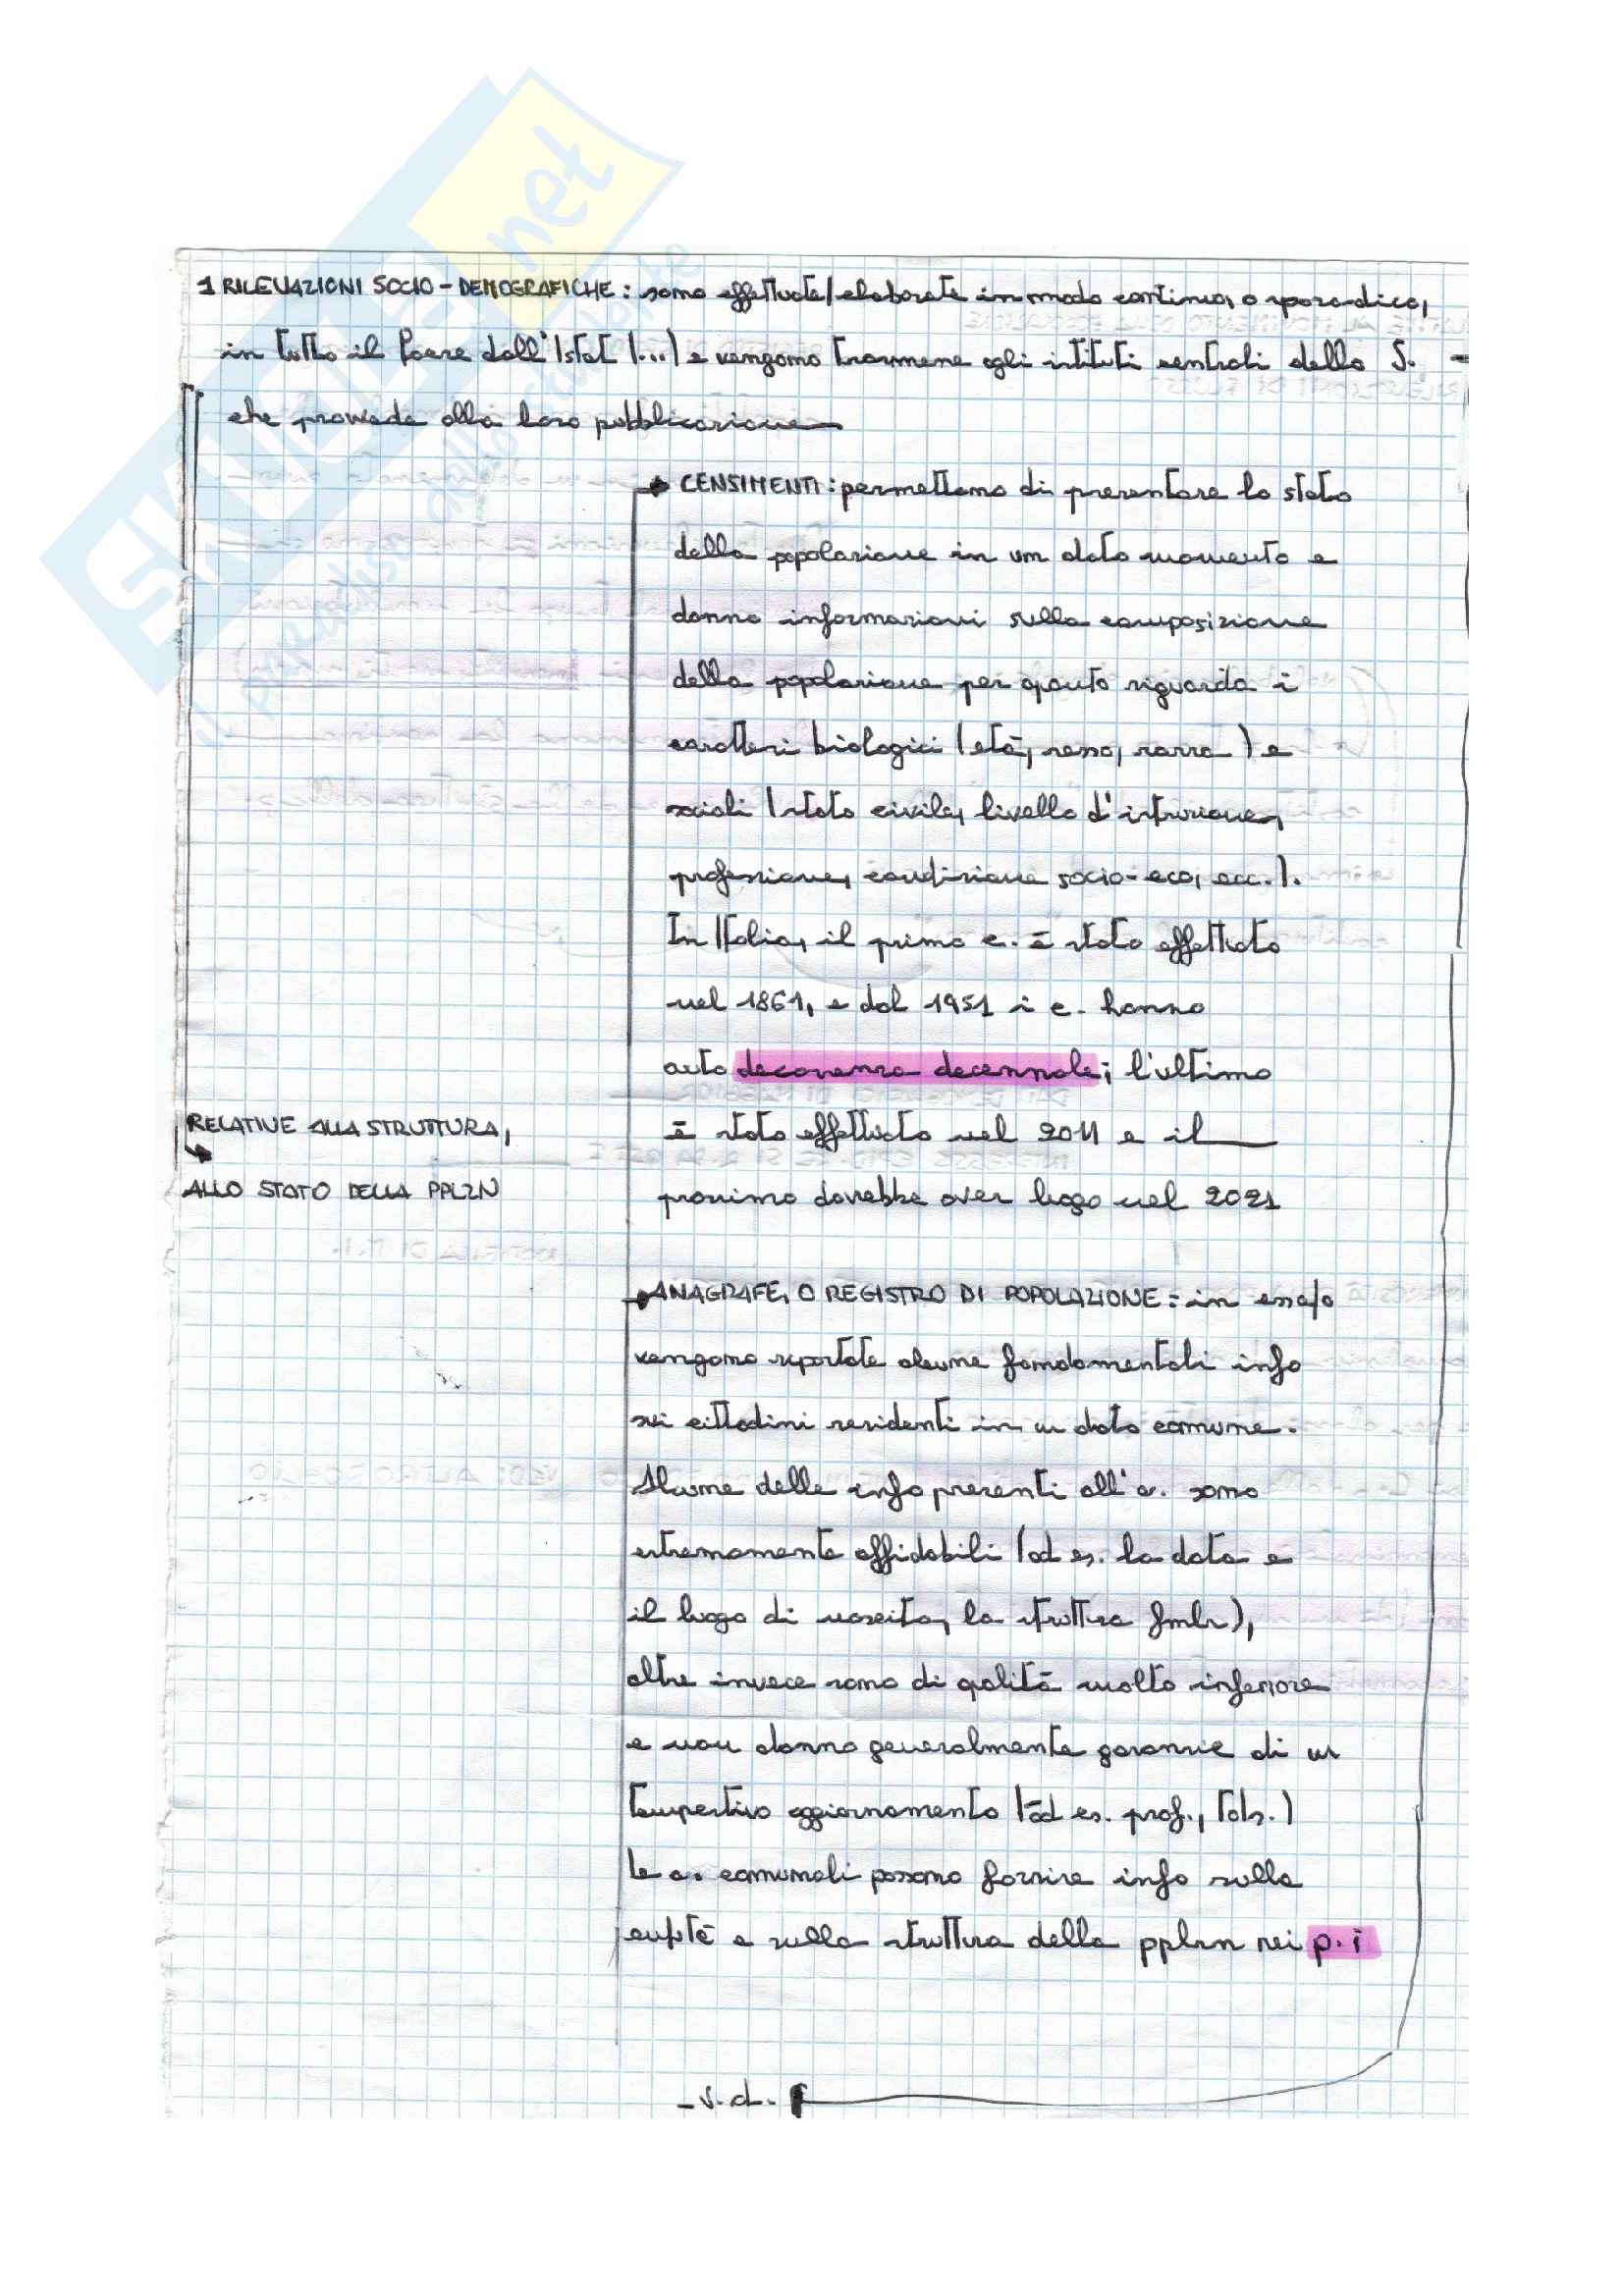 SKUOLA.net
il paradiso dello studente
1 RILEVAZIONI SOCIO-DEMOGRAFICHE: sono effettuate/elaborate in modo continuo, o sporadico,
in tutto il Paese dall'Istat (...) e vengono trasmesse agli istituti centrali dello S.
che provvede alla loro pubblicazione
→ CENSIMENTI: permettono di presentare lo stato
della popolazione in un dato momento e
danno informazioni sulla composizione
della popolazione per qanto riguarda i
caratteri biologici (età, sesso, razza) e
sociali (stato civile, livello d'istruzione,
professione, condizione socio-eco, ecc.).
In Italia, il primo c. è stato effettuato
nel 1861, e dal 1951 i c. hanno
auto decorrenza decennale; l'ultimo
è stato effettuato nel 2011 e il
prossimo dovrebbe aver luogo nel 2021
RELATIVE ALLA STRUTTURA,
ALLO STATO DELLA PPLZN
→ ANAGRAFE, O REGISTRO DI POPOLAZIONE: in essa/o
vengono riportate alcune fondamentali info
sui cittadini residenti in un dato comune.
Alcune delle info presenti all'a. sono
estremamente affidabili (ad es. la data e
il luogo di nascita, la struttura fmlr),
altre invece sono di qalità molto inferiore
e non danno generalmente garanzie di un
tempestivo aggiornamento (ad es. prof.,
Le a. comunali possono fornire info sulla
e sulla struttura della pplzn nei p. i
- v. d.